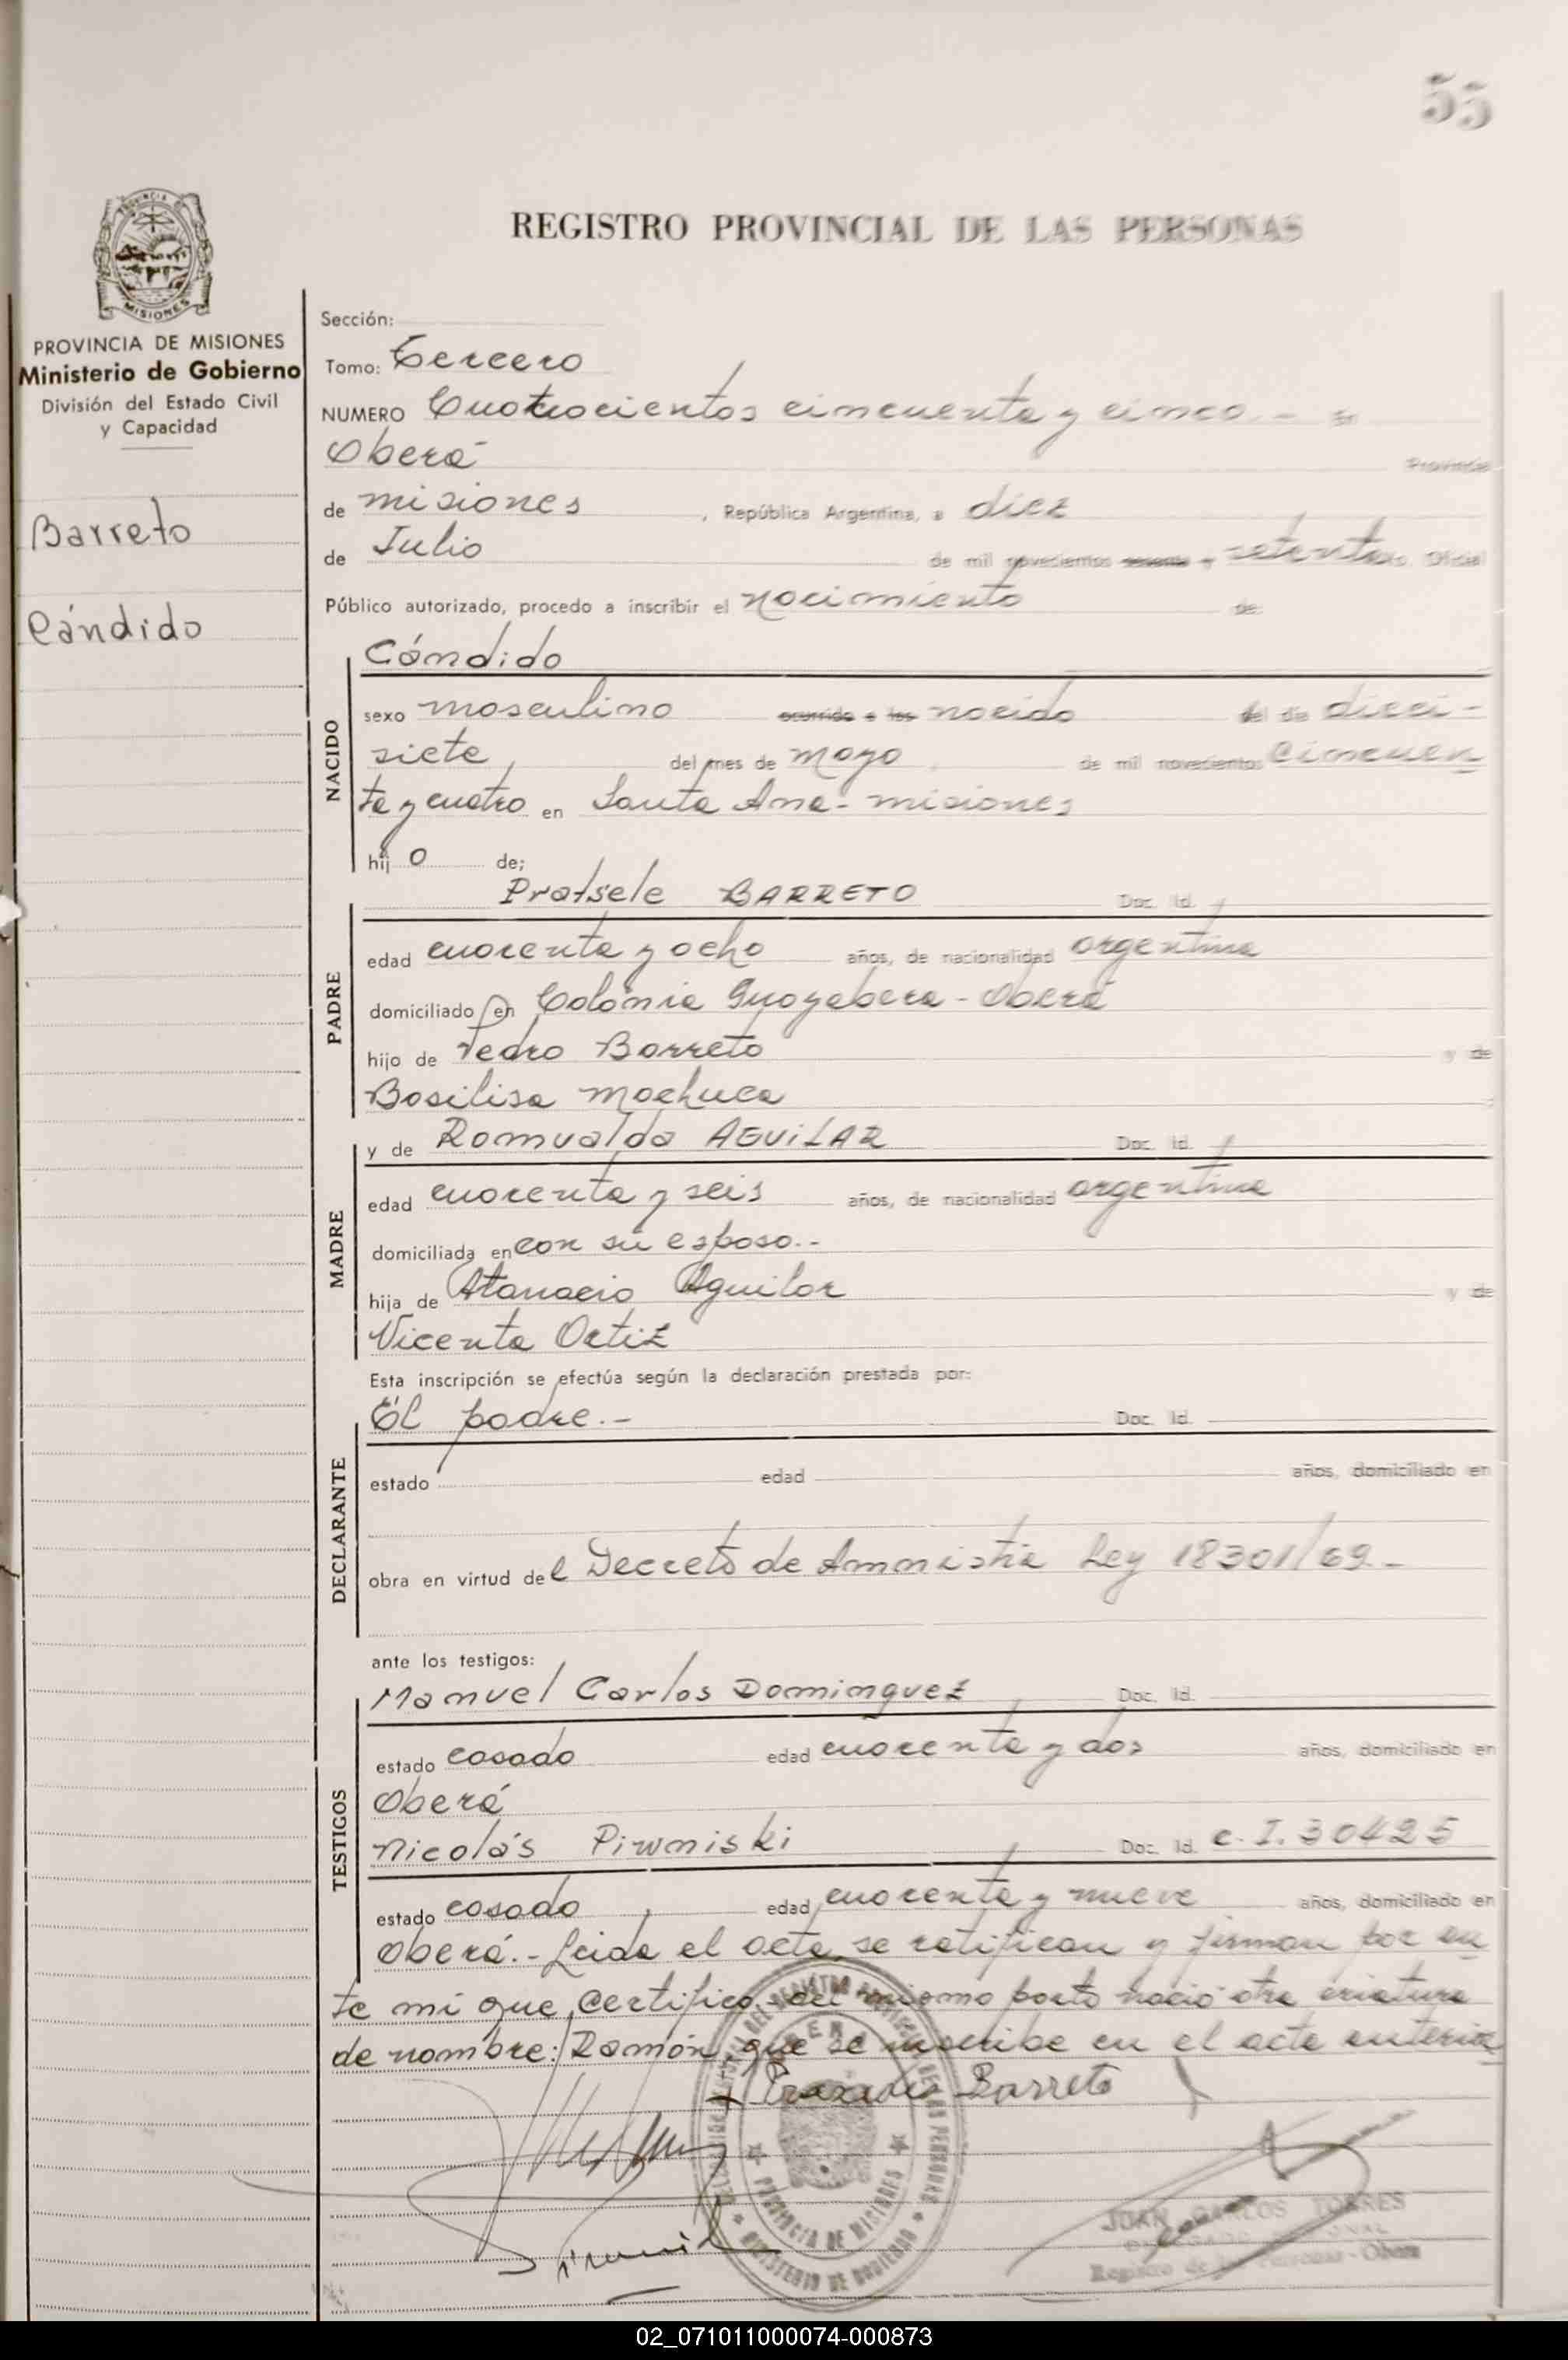 55
REGISTRO PROVINCIAL DE LAS PERSONAS
PROVINCIA
MISIONES
PROVINCIA DE MISIONES
Ministerio de Gobierno
División del Estado Civil
y Capacidad
Barreto
Cándido
Sección:
Tomo: Tercero
NUMERO Cuatrocientos cincuenta y cinco.- En
Oberá Provincia
de misiones, República Argentina, a diez
de Julio de mil novecientos sesenta y setenta Oficial
Público autorizado, procedo a inscribir el nacimiento de:
NACIDO
Cándido
sexo masculino ocurrido a las nacido del día dieci-
siete del mes de mayo de mil novecientos cincuen
ta y cuatro en Santa Ana- misiones
hij o de;
PADRE
Pratsele BARRETO Doc. Id.
edad cuarenta y ocho años, de nacionalidad argentina
domiciliado en Colonia Guayabera - Oberá
hijo de Pedro Barreto y de
Basilisa Machuca
MADRE
y de Romualda AGUILAR Doc. Id.
edad cuarenta y seis años, de nacionalidad argentina
domiciliada en con su esposo.-
hija de Atanacio Aguilar y de
Vicenta Ortiz
Esta inscripción se efectúa según la declaración prestada por:
DECLARANTE
El padre.- Doc. Id.
estado edad años, domiciliado en
obra en virtud del Decreto de Amnistia Ley 18301/69.-
ante los testigos:
TESTIGOS
Manuel Carlos Dominguez Doc. Id.
estado casado edad cuarenta y dos años, domiciliado en
Oberá
Nicolás Piwniski Doc. Id. C.I. 30425
estado casado edad cuarenta y nueve años, domiciliado en
Oberá.- Leida el acta, se ratifican y firman por an
te mi que certifico. del mismo parto nació otra criatura
de nombre: Ramón, que se inscribe en el acta anterior
Barreto
PROVINCIA DE MISIONES
MINISTERIO DE GOBIERNO
JUAN CARLOS TORRES
Registro de las Personas - Obera
02_071011000074-000873